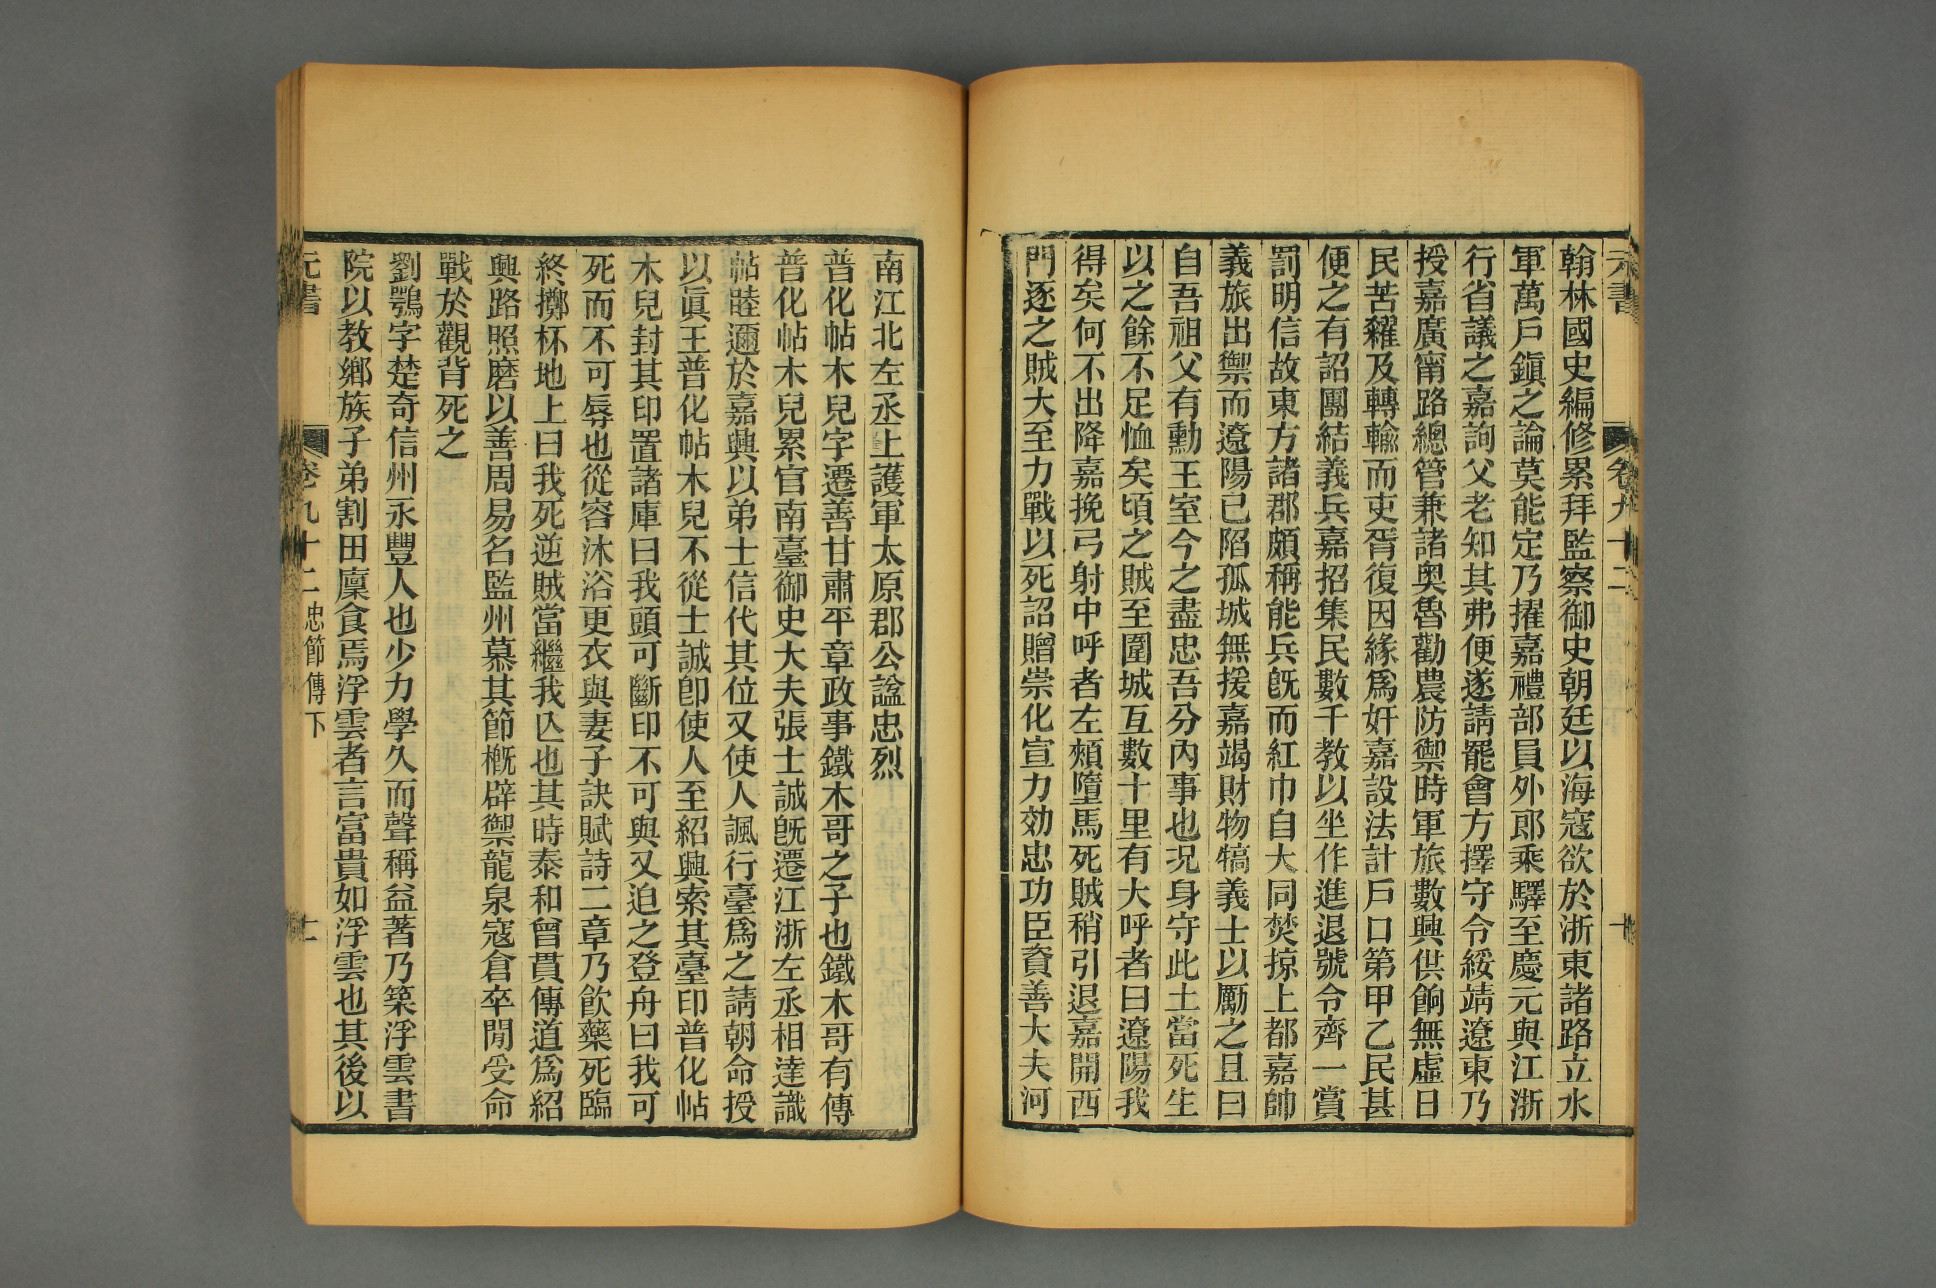 元書
卷九十二
十
翰林國史編修累拜監察御史朝廷以海寇欲於浙東諸路立水
軍萬戶鎭之論莫能定乃擢嘉禮部員外郎乘驛至慶元與江浙
行省議之嘉詢父老知其弗便遂請罷會方擇守令綏靖遼東乃
授嘉廣甯路總管兼諸奧魯勸農防禦時軍旅數興供餉無虛日
民苦糴及轉輸而吏胥復因緣爲奸嘉設法計戶口第甲乙民甚
便之有詔團結義兵嘉招集民數千教以坐作進退號令齊一賞
罰明信故東方諸郡頗稱能兵旣而紅巾自大同焚掠上都嘉帥
義旅出禦而遼陽已陷孤城無援嘉竭財物犒義士以勵之且曰
自吾祖父有勳王室今之盡忠吾分內事也況身守此土當死生
以之餘不足恤矣頃之賊至圍城互數十里有大呼者曰遼陽我
得矣何不出降嘉挽弓射中呼者左頰墮馬死賊稍引退嘉開西
門逐之賊大至力戰以死詔贈崇化宣力効忠功臣資善大夫河
南江北左丞上護軍太原郡公諡忠烈
普化帖木兒字遷善甘肅平章政事鐵木哥之子也鐵木哥有傳
普化帖木兒累官南臺御史大夫張士誠旣遷江浙左丞相達識
帖睦邇於嘉興以弟士信代其位又使人諷行臺爲之請朝命授
以眞王普化帖木兒不從士誠卽使人至紹興索其臺印普化帖
木兒封其印置諸庫曰我頭可斷印不可與又迫之登舟曰我可
死而不可辱也從容沐浴更衣與妻子訣賦詩二章乃飮藥死臨
終擲杯地上曰我死逆賊當繼我亾也其時泰和曾貫傳道爲紹
興路照磨以善周易名監州慕其節槪辟禦龍泉寇倉卒閒受命
戰於觀背死之
劉鶚字楚奇信州永豐人也少力學久而聲稱益著乃築浮雲書
院以教鄉族子弟割田廩食焉浮雲者言富貴如浮雲也其後以
元書
卷九十二忠節傳下
十一